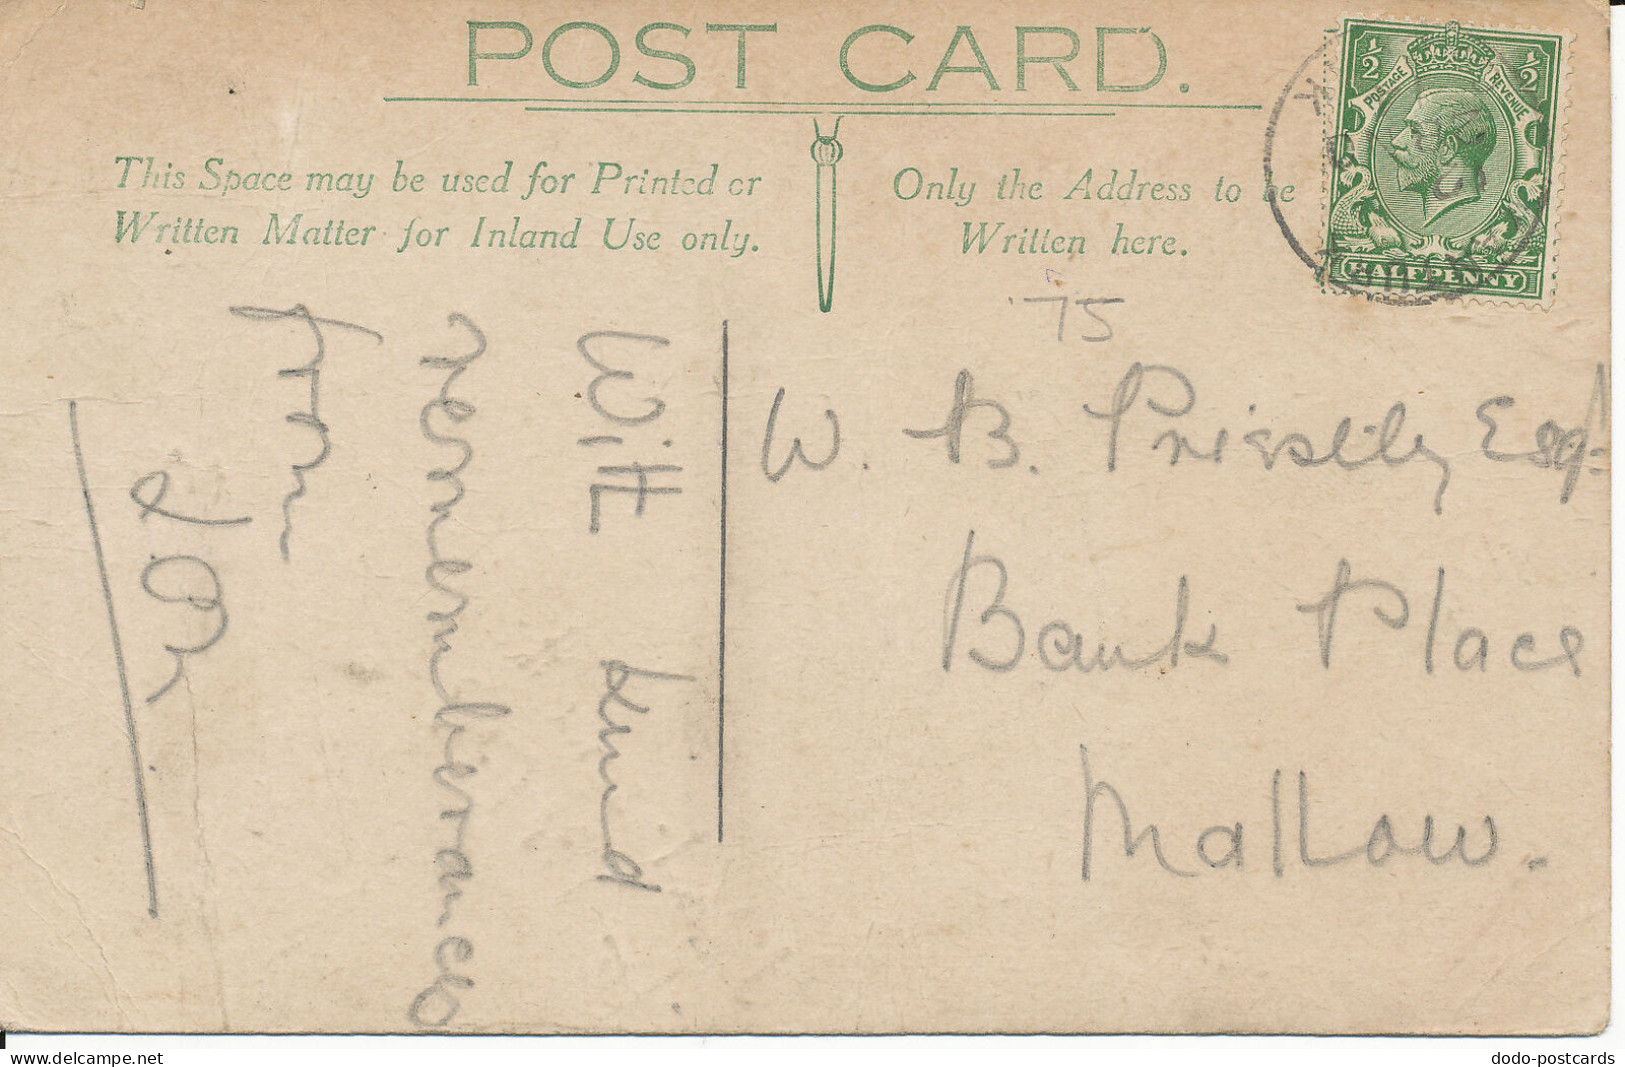 POST CARD.
This Space may be used for Printed or
Written Matter for Inland Use only.
Only the Address to be
Written here.
½ ½
POSTAGE REVENUE
HALFPENNY
75
W. B. Priestley Esqr
Bank Place
Mallow.
With kind
remembrances
from
delcampe.net
dodo-postcards